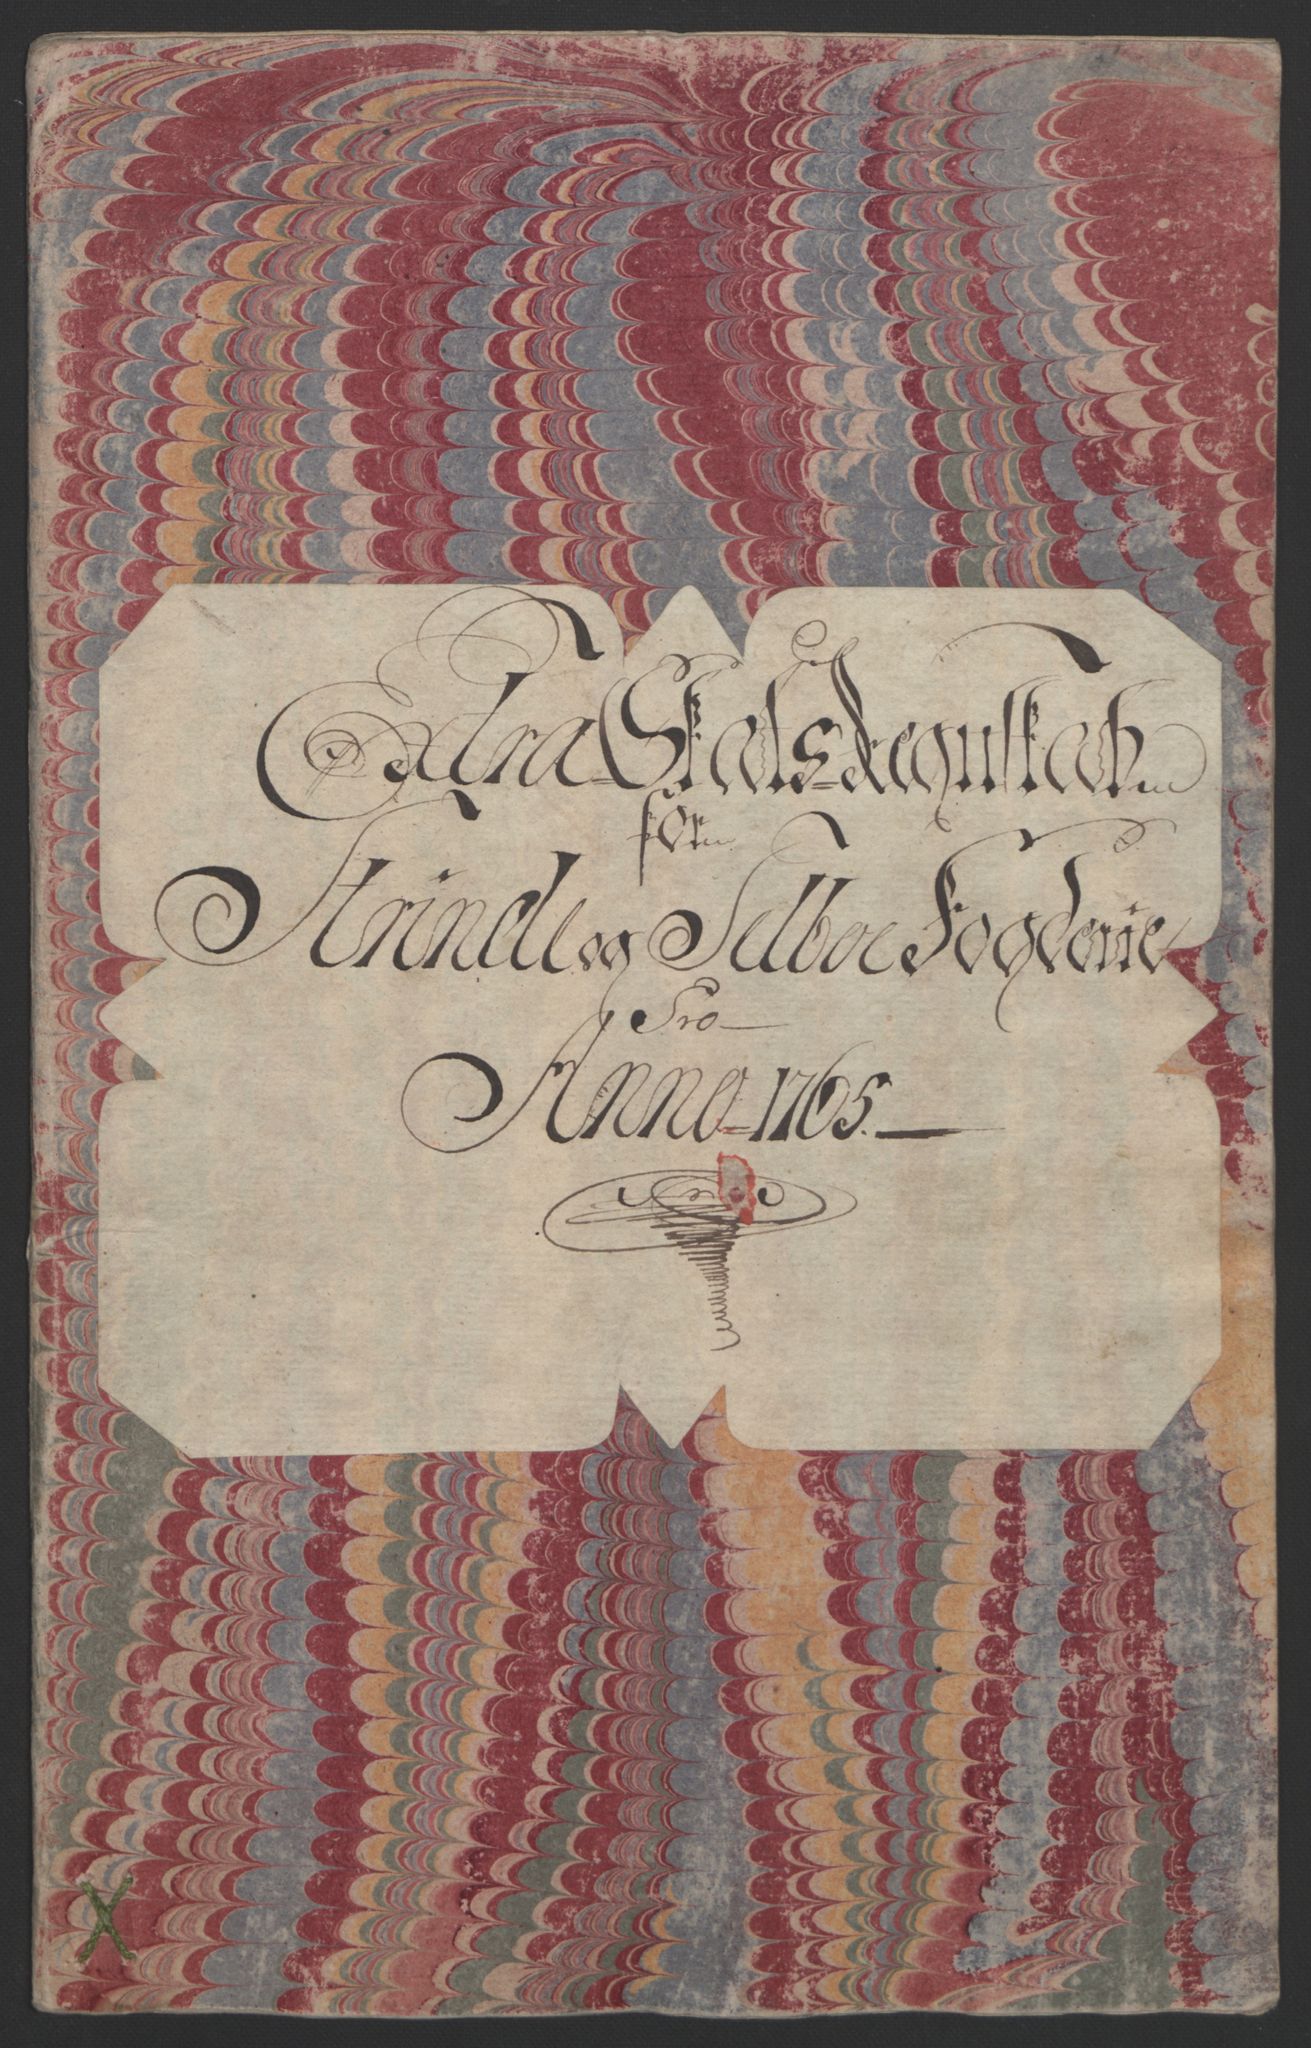 Extra-Skats-Regnskab
for
Strinde og Selboe Fogderie
Pro
Anno 1765.